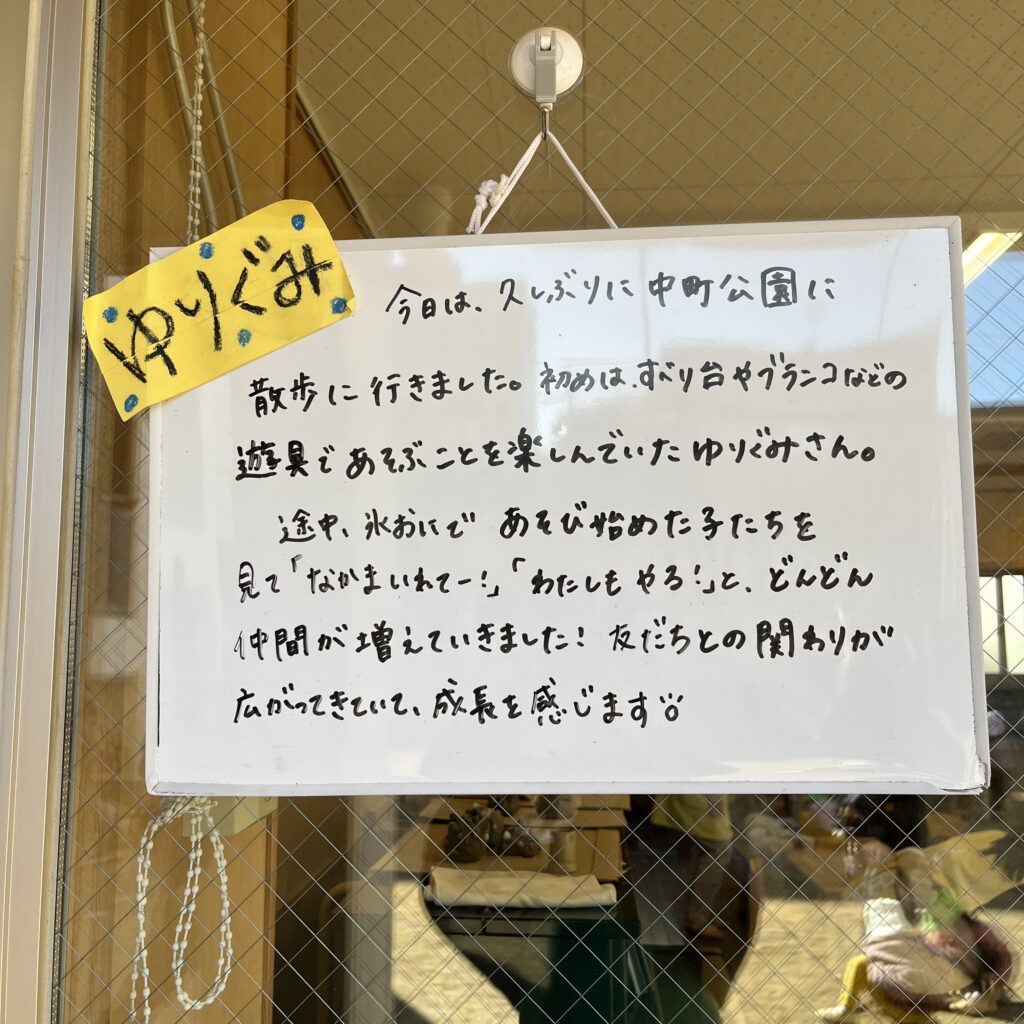 ゆりぐみ
今日は、久しぶりに中町公園に
散歩に行きました。初めは、すべり台やブランコなどの
遊具であそぶことを楽しんでいたゆりぐみさん。
途中、氷おにであそび始めた子たちを
見て「なかまいれてー!」「わたしもやる!」と、どんどん
仲間が増えていきました! 友だちとの関わりが
広がってきていて、成長を感じます